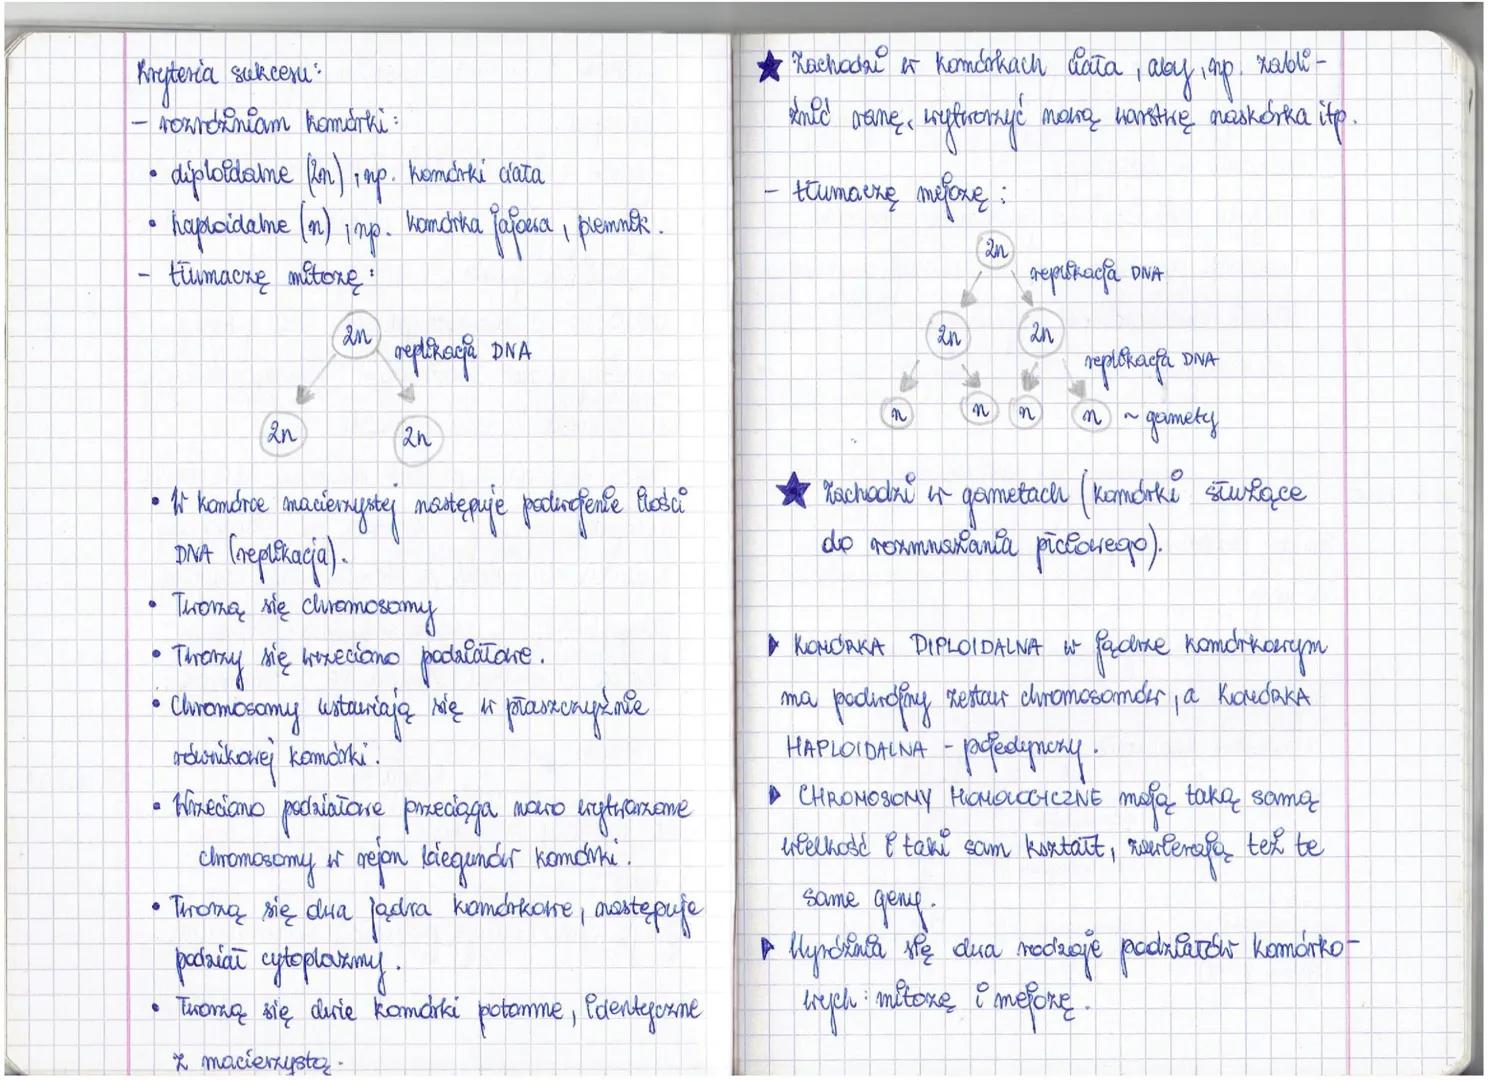 Kryteria sukcesu:
- rozróżniam komórki:
• diploidalne (2n), np. komórki ciała
• haploidalne (n), np. komórka jajowa, plemnik.
- tłumaczę mitozę:
2n
replikacja DNA
2n 2n
• W komórce macierzystej następuje podwojenie ilości
DNA (replikacja).
• Tworzą się chromosomy
• Tworzy się wrzeciono podziałowe.
• Chromosomy ustawiają się w płaszczyźnie
równikowej komórki.
• Wrzeciono podziałowe przeciąga nowo wytworzone
chromosomy w rejon biegunów komórki.
• Tworzą się dwa jądra komórkowe, następuje
podział cytoplazmy.
• Tworzą się dwie komórki potomne, identyczne
z macierzystą.
★ Zachodzi w komórkach ciała, aby, np. zabli-
źnić ranę, wytworzyć nową warstwę naskórka itp.
- tłumaczę mejozę:
2n
replikacja DNA
2n 2n
replikacja DNA
n n n n ~ gamety
★ Zachodzi w gametach (komórki służące
do rozmnażania płciowego).
▶ KOMÓRKA DIPLOIDALNA w jądrze komórkowym
ma podwójny zestaw chromosomów, a KOMÓRKA
HAPLOIDALNA - pojedynczy.
▶ CHROMOSOMY HOMOLOGICZNE mają taką samą
wielkość i taki sam kształt, zawierają też te
same geny.
▶ Wyróżnia się dwa rodzaje podziałów komórko-
wych: mitozę i mejozę.